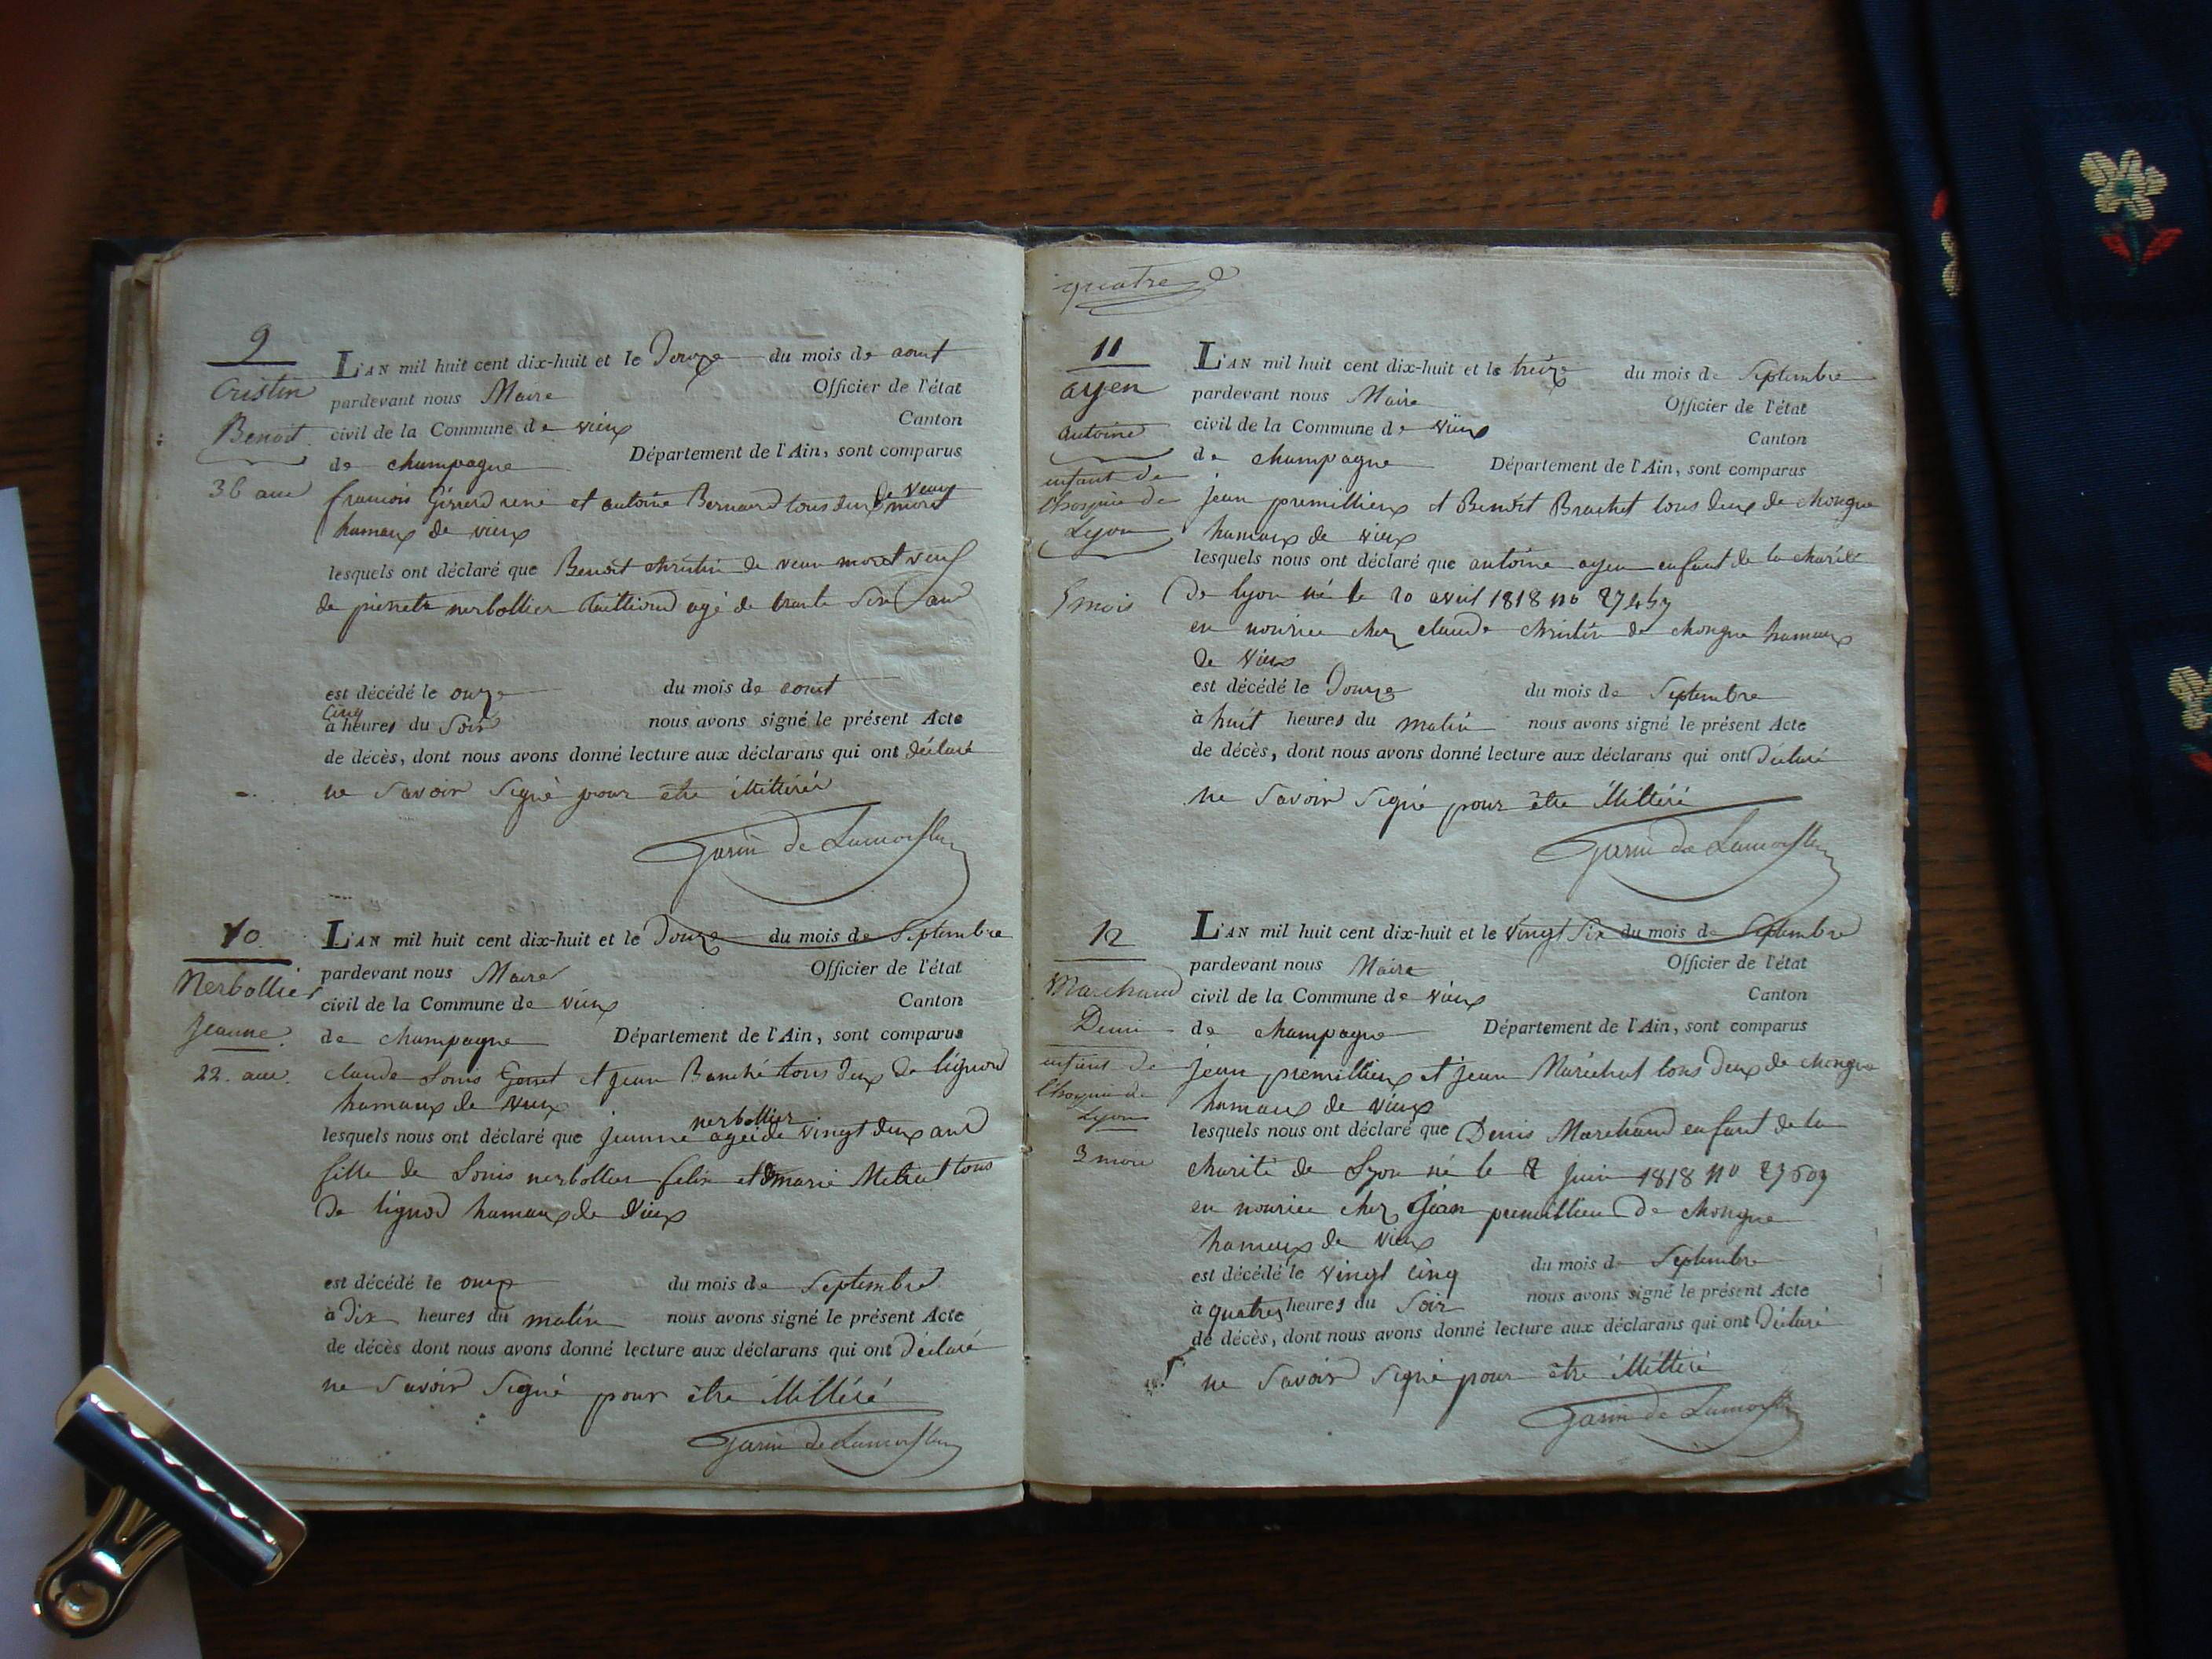 9
Cristin
Benoit
36 ans
L'AN mil huit cent dix-huit et le Douze du mois de aout
pardevant nous Maire Officier de l'état
civil de la Commune de vieux Canton
de champagne Département de l'Ain, sont comparus
francois Girerd et antoine Bernard tous deux de veau moret
hamaux de vieux
lesquels ont déclaré que Benoit christin de veau moret veuf
de pierrette nerbollier agé de trente Six ans
est décédé le onze du mois de aout
Cinq
à heures du Soir nous avons signé le présent Acte
de décès, dont nous avons donné lecture aux déclarans qui ont déclaré
ne Savoir Signé pour être illittérés
Garin de Lamorflan
10
Nerbollier
Jeanne
22. ans.
L'AN mil huit cent dix-huit et le Douze du mois de Septembre
pardevant nous Maire Officier de l'état
civil de la Commune de vieux Canton
de champagne Département de l'Ain, sont comparus
claude Louis et jean tous deux de lignod
hamaux de vieux
nerbollier
lesquels nous ont déclaré que jeanne agée de vingt deux ans
fille de Louis nerbollier felix et marie tous
de lignod hamaux de Vieux
est décédé le onze du mois de Septembre
à Dix heures du matin nous avons signé le présent Acte
de décès dont nous avons donné lecture aux déclarans qui ont déclaré
ne Savoir Signé pour être illittéré
Garin de Lamorflan
quatre
11
ayen
antoine
enfant de
l'hospice de
Lyon
5 mois
L'AN mil huit cent dix-huit et le treize du mois de Septembre
pardevant nous Maire Officier de l'état
civil de la Commune de vieux Canton
de champagne Département de l'Ain, sont comparus
jean premillieux et Benoit Brachet tous deux de chongne
hamaux de vieux
lesquels nous ont déclaré que antoine ayen enfant de la charité
de lyon né le 20 avril 1818 no
en nourice chez claude christin de chongne hamaux
de vieux
est décédé le Douze du mois de Septembre
à huit heures du matin nous avons signé le présent Acte
de décès, dont nous avons donné lecture aux déclarans qui ont Déclaré
ne Savoir Signé pour être illittéré
Garin de Lamorflan
12
Marchand
Denis
enfant de
l'hospice de
Lyon
3 mois
L'AN mil huit cent dix-huit et le vingt Six du mois de Septembre
pardevant nous Maire Officier de l'état
civil de la Commune de vieux Canton
de champagne Département de l'Ain, sont comparus
jean premillieux et jean Maréchal tous deux de chongne
hamaux de vieux
lesquels nous ont déclaré que Denis Marchand enfant de la
charité de Lyon né le juin 1818 no
en nourice chez jean premillieu de chongne
hameaux de vieux
est décédé le vingt cinq du mois de Septembre
à quatres heures du Soir nous avons signé le présent Acte
de décès, dont nous avons donné lecture aux déclarans qui ont Déclaré
ne Savoir Signé pour être illittéré
Garin de Lamorflan